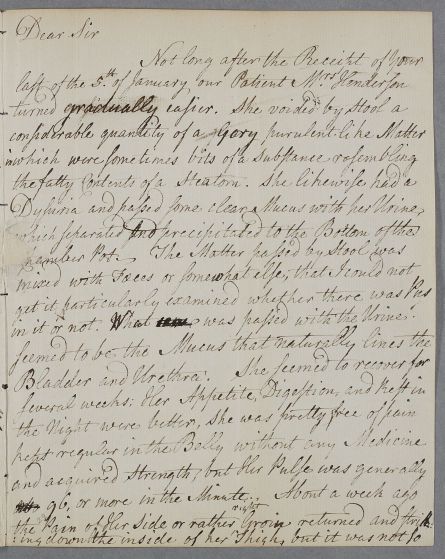 Dear Sir
Not long after the Receipt of Your
last of the 5.th of January, our Patient Mrs Henderson
turned gradually easier. She voided by Stool a
considerable quantity of a Gory, purulent-like Matter
in which were sometimes bits of a Substance resembling
the fatty Contents of a Steatom. She likewise had a
Dysuria and passed some clear Mucus with her Urine,
which separated and precipitated to the Bottom of the
Chamber Pot. The Matter passed by Stool was
mixed with Fœces or somewhat else, that I could not
get it particularly examined whether there was Pus
in it or not. What was passed with the Urine
seemed to be the Mucus that naturally lines the
Bladder and Urethra. She seemed to recover for
several weeks: Her Appetite, Digestion, and Rest in
the Night were better, She was pretty free of pain
kept regular in the Belly without any Medicine
and acquired strength, but Her Pulse was generally
96, or more in the Minute. About a week ago
right
the Pain of Her Side or rather Groin returned and
ing down the inside of her Thigh, but it was not so